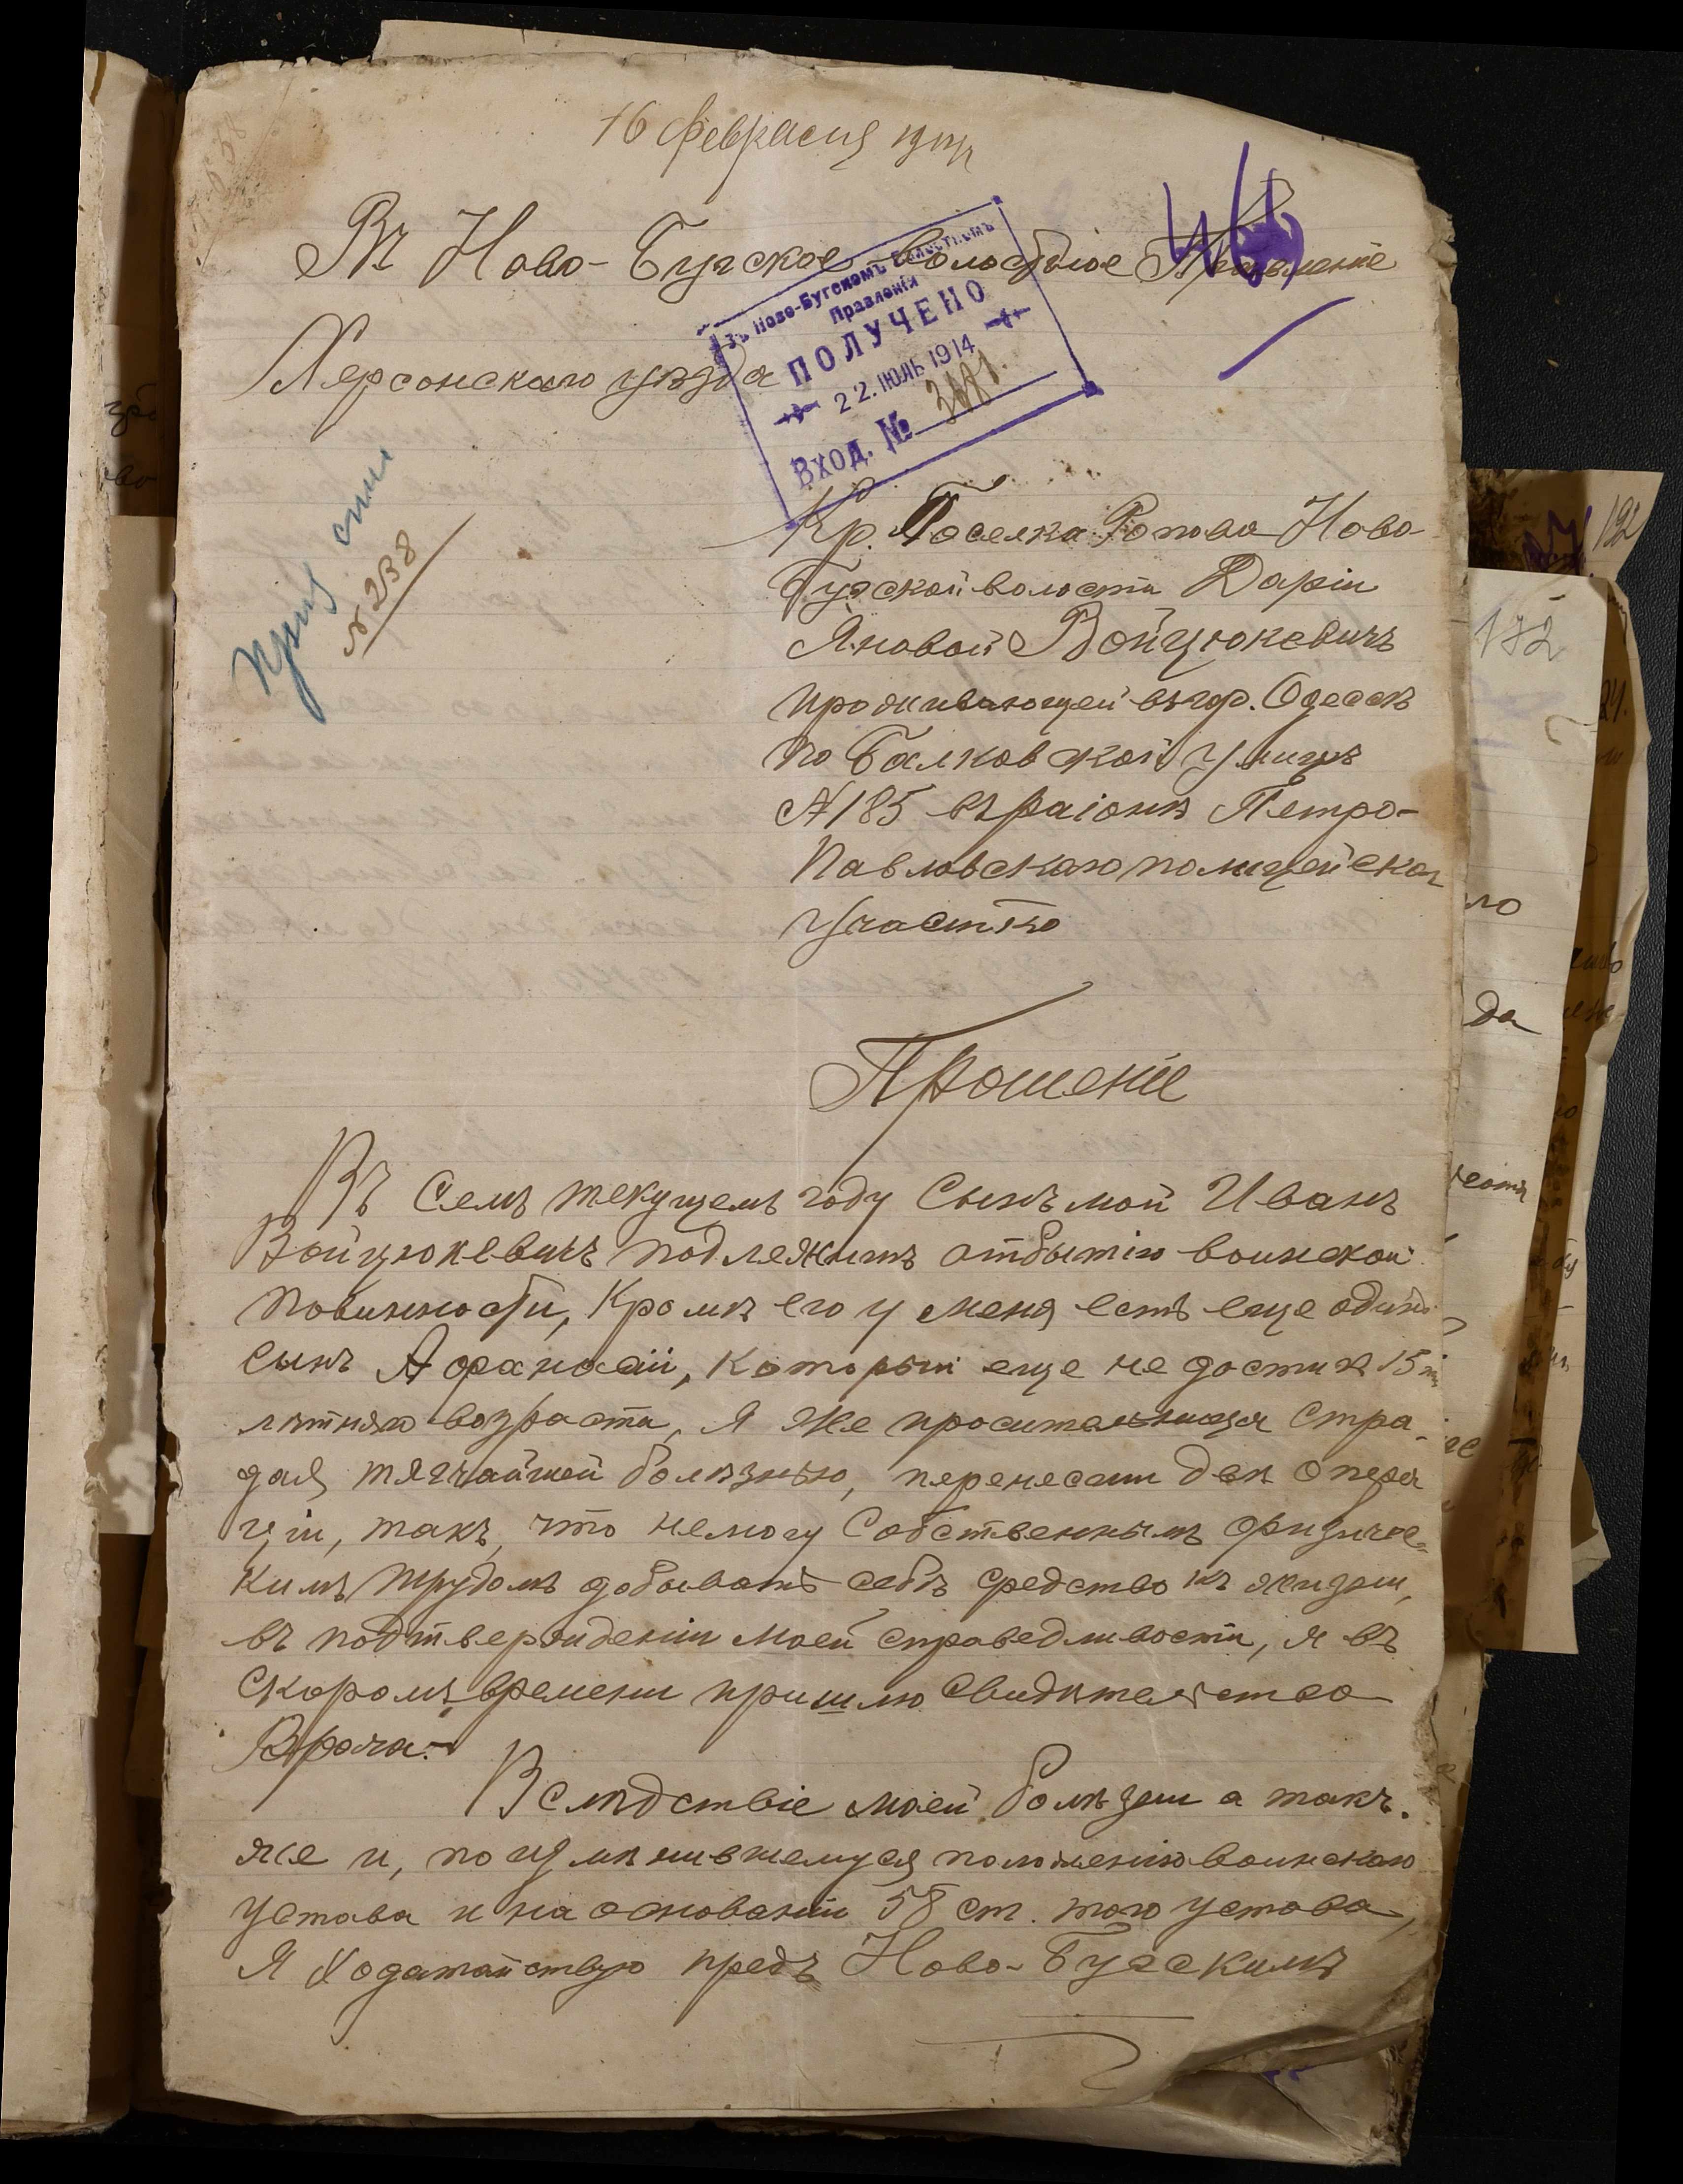 16 февраля 1914
Въ Ново-Бугское Волостное Правленіе
Ново-Бугскомъ Волостномъ
Правленіи
ПОЛУЧЕНО
22. ІЮЛЬ 1914
Вход. №
Херсонскаго уѣзда
№ 238
Кр. Поселка Ново-
Бугской волости Даріи
Яновой Войцюкевичъ
проживающей въ гор. Одессѣ
по Балковской улицѣ
№ 185 въ раіонѣ Петро-
Павловскаго полицейскаг
участка
Прошеніе
Въ семъ текущемъ году сынъ мой Иванъ
Войцюкевичъ подлежитъ отбытію воинской
повинности, кромѣ его у меня есть еще одинъ
сынъ Афанасій, который еще не достигъ 15 ти
лѣтняго возраста, я же просительница стра-
дая тягчайшей болѣзнью, перенесши двѣ опера
ціи, такъ, что немогу собственнымъ физичес-
кимъ трудомъ добывать себѣ средство къ жизни,
въ подтвержденіи моей справедливости, я въ
скоромъ времени пришлю свидѣтельство
Врача.-
Вслѣдствіе моей болѣзни а такъ.
же и, по измѣнившемуся положенію воинскаго
устава и на основаніи 58 ст. того устава,
я ходатайствую предъ Ново-Бугскимъ
172
192
ло
да